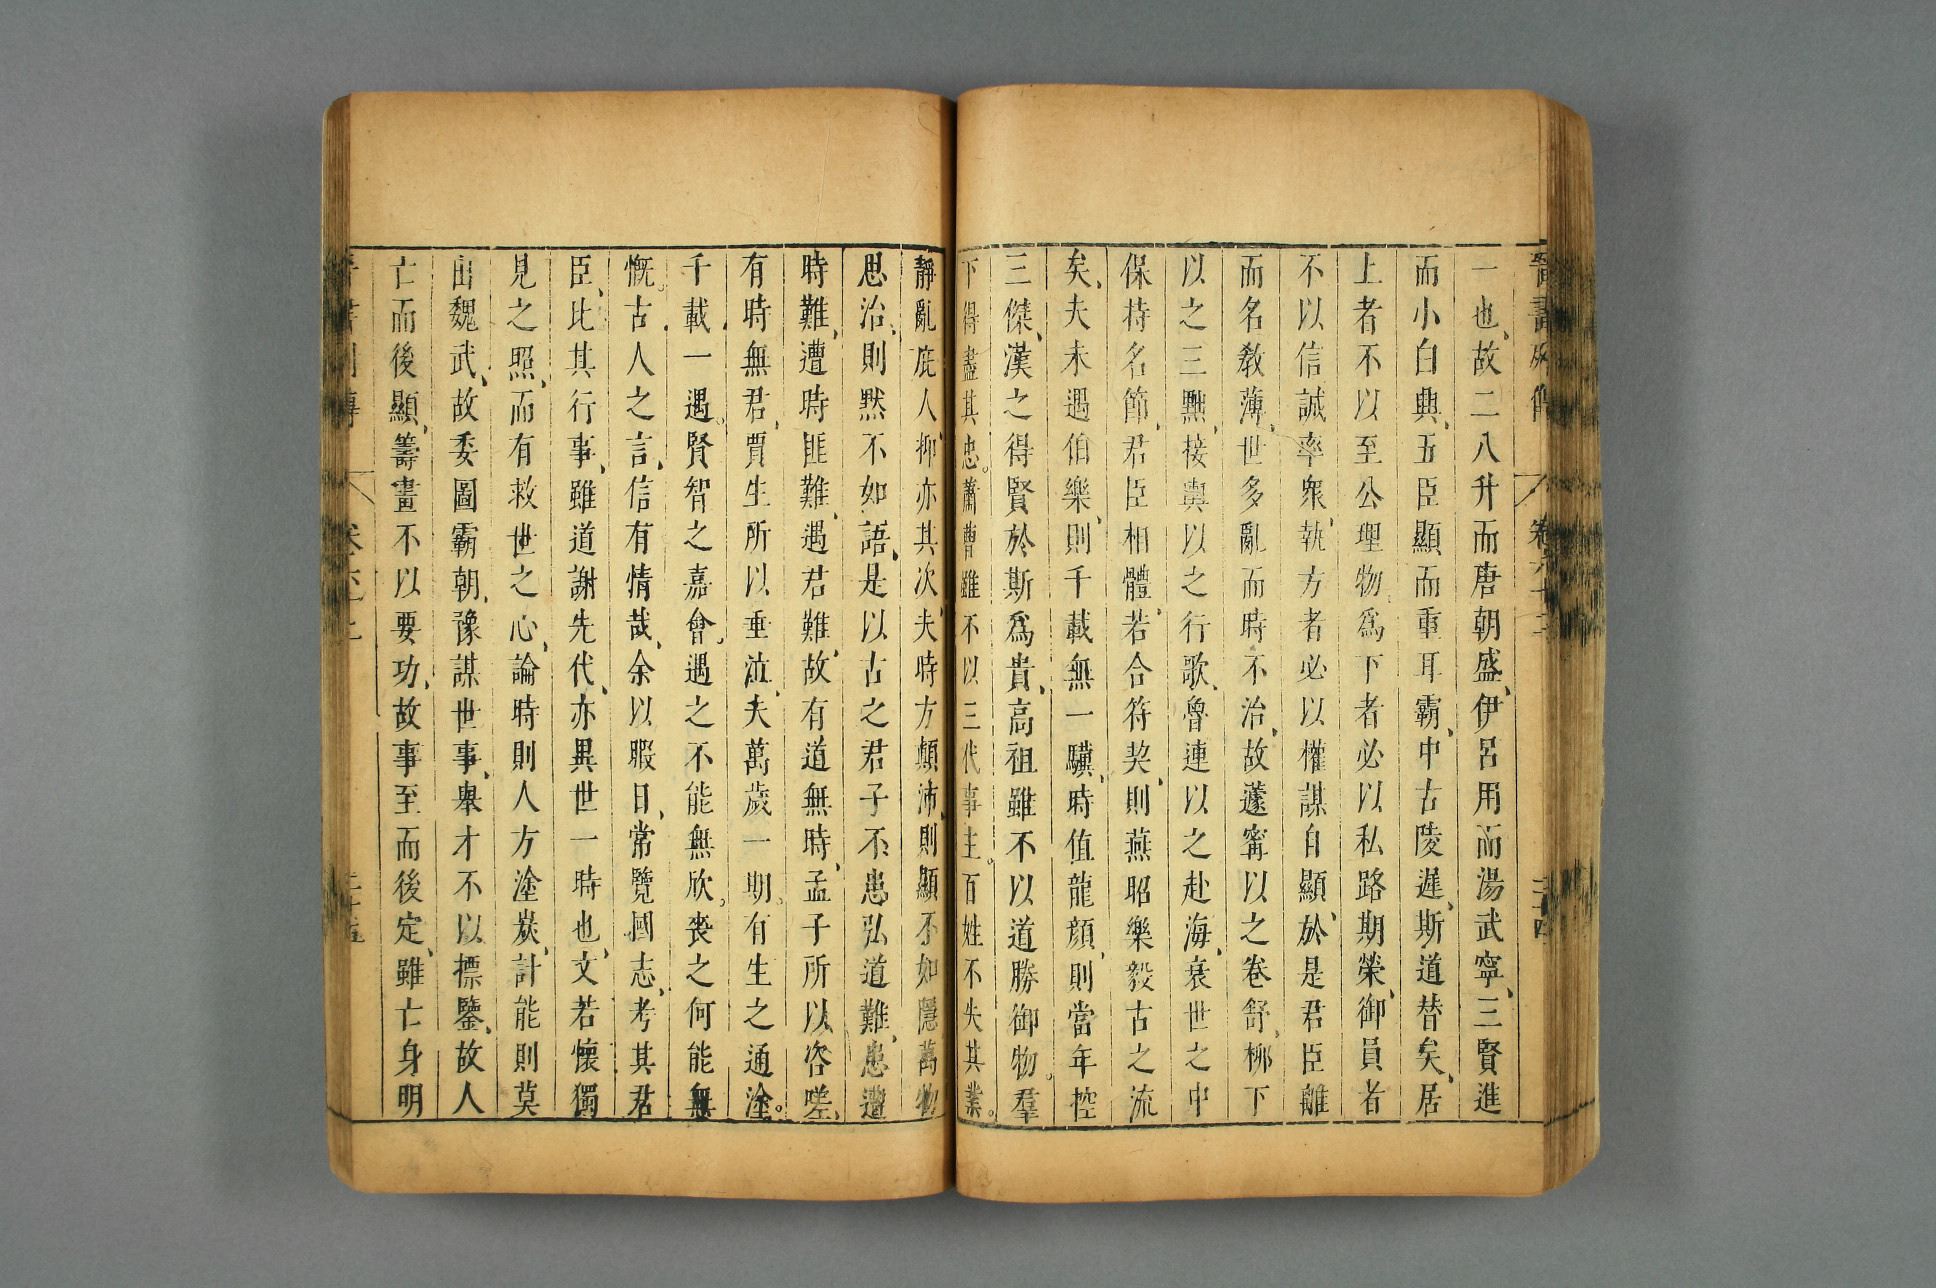 一也故二八升而唐朝盛伊呂用而湯武寧三賢進
而小白興五臣顯而重耳霸中古陵遲斯道替矣居
上者不以至公理物爲下者必以私路期榮御員者
不以信誠率衆執方者必以權謀自顯於是君臣離
而名敎薄世多亂而時不治故蘧甯以之卷舒柳下
以之三黜接輿以之行歌魯連以之赴海衰世之中
保持名節君臣相體若合符契則燕昭樂毅古之流
矣夫未遇伯樂則千載無一驥時值龍顏則當年控
三傑漢之得賢於斯爲貴高祖雖不以道勝御物羣
下得盡其忠蕭曹雖不以三代事主百姓不失其業
靜亂庇人抑亦其次夫時方顛沛則顯不如隱萬物
思治則默不如語是以古之君子不患弘道難患遭
時難遭時匪難遇君難故有道無時孟子所以咨嗟
有時無君賈生所以垂泣夫萬歲一期有生之通塗
千載一遇賢智之嘉會遇之不能無欣喪之何能無
慨古人之言信有情哉余以暇日常覽國志考其君
臣比其行事雖道謝先代亦異世一時也文若懷獨
見之照而有救世之心論時則人方塗炭計能則莫
出魏武故委圖霸朝豫謀世事舉才不以標鑒故人
亡而後顯籌畫不以要功故事至而後定雖亡身明